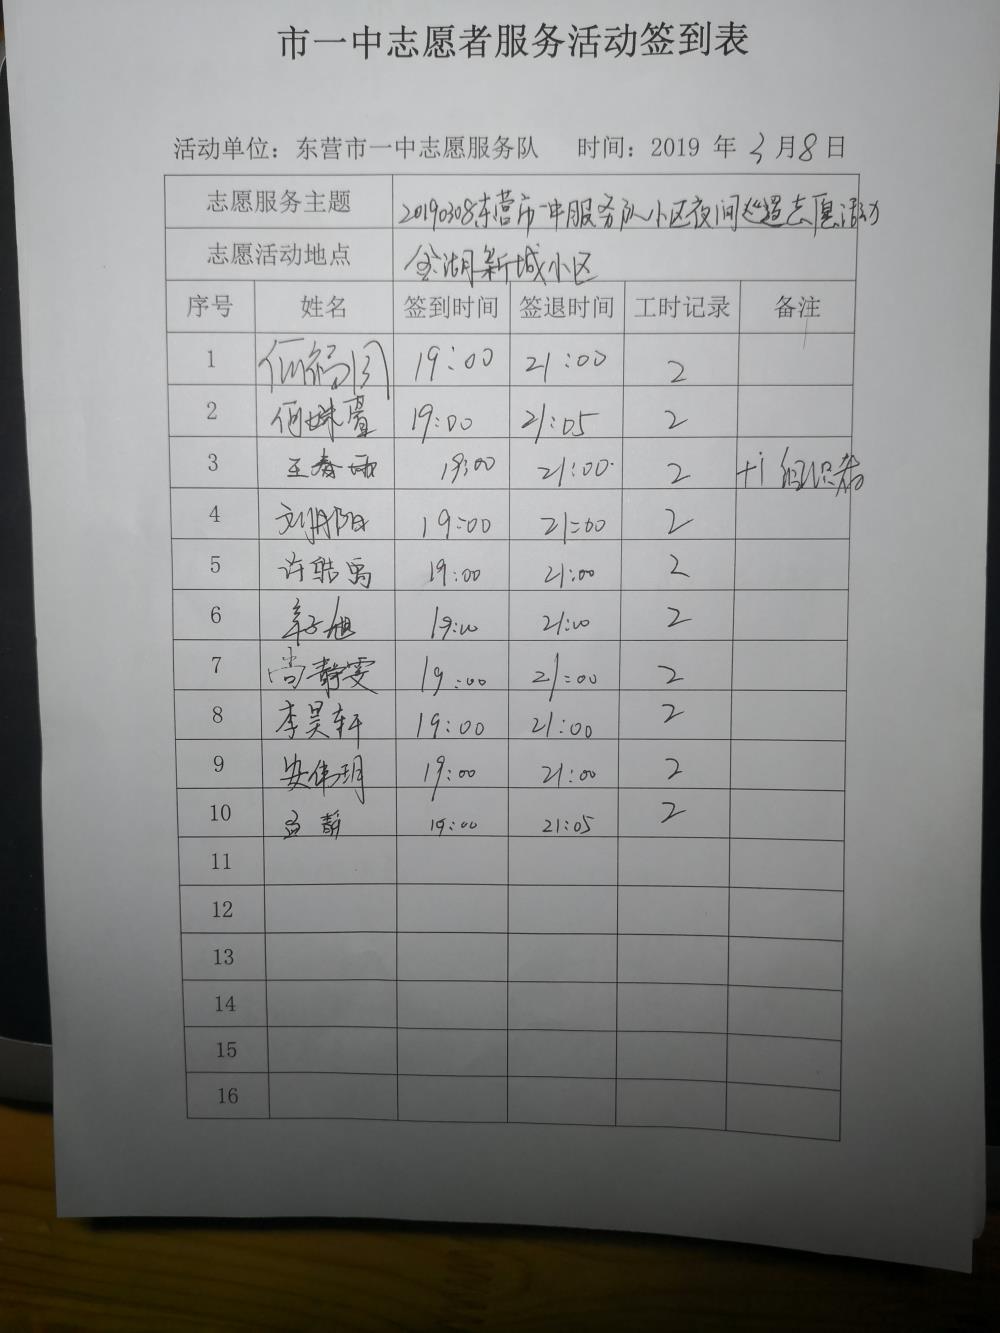 市一中志愿者服务活动签到表
活动单位：东营市一中志愿服务队 时间：2019 年 3 月 8 日
志愿服务主题 20190308东营市一中服务队小区夜间巡逻志愿活动
志愿活动地点 金湖新城小区
序号 姓名 签到时间 签退时间 工时记录 备注
1 19:00 21:00 2
2 19:00 21:05 2
3 王春 19:00 21:00 2 +1 组织者
4 刘阳 19:00 21:00 2
5 许皓禹 19:00 21:00 2
6 旭 19:00 21:00 2
7 尚静雯 19:00 21:00 2
8 李昊轩 19:00 21:00 2
9 安伟玥 19:00 21:00 2
10 孟静 19:00 21:05 2
11
12
13
14
15
16